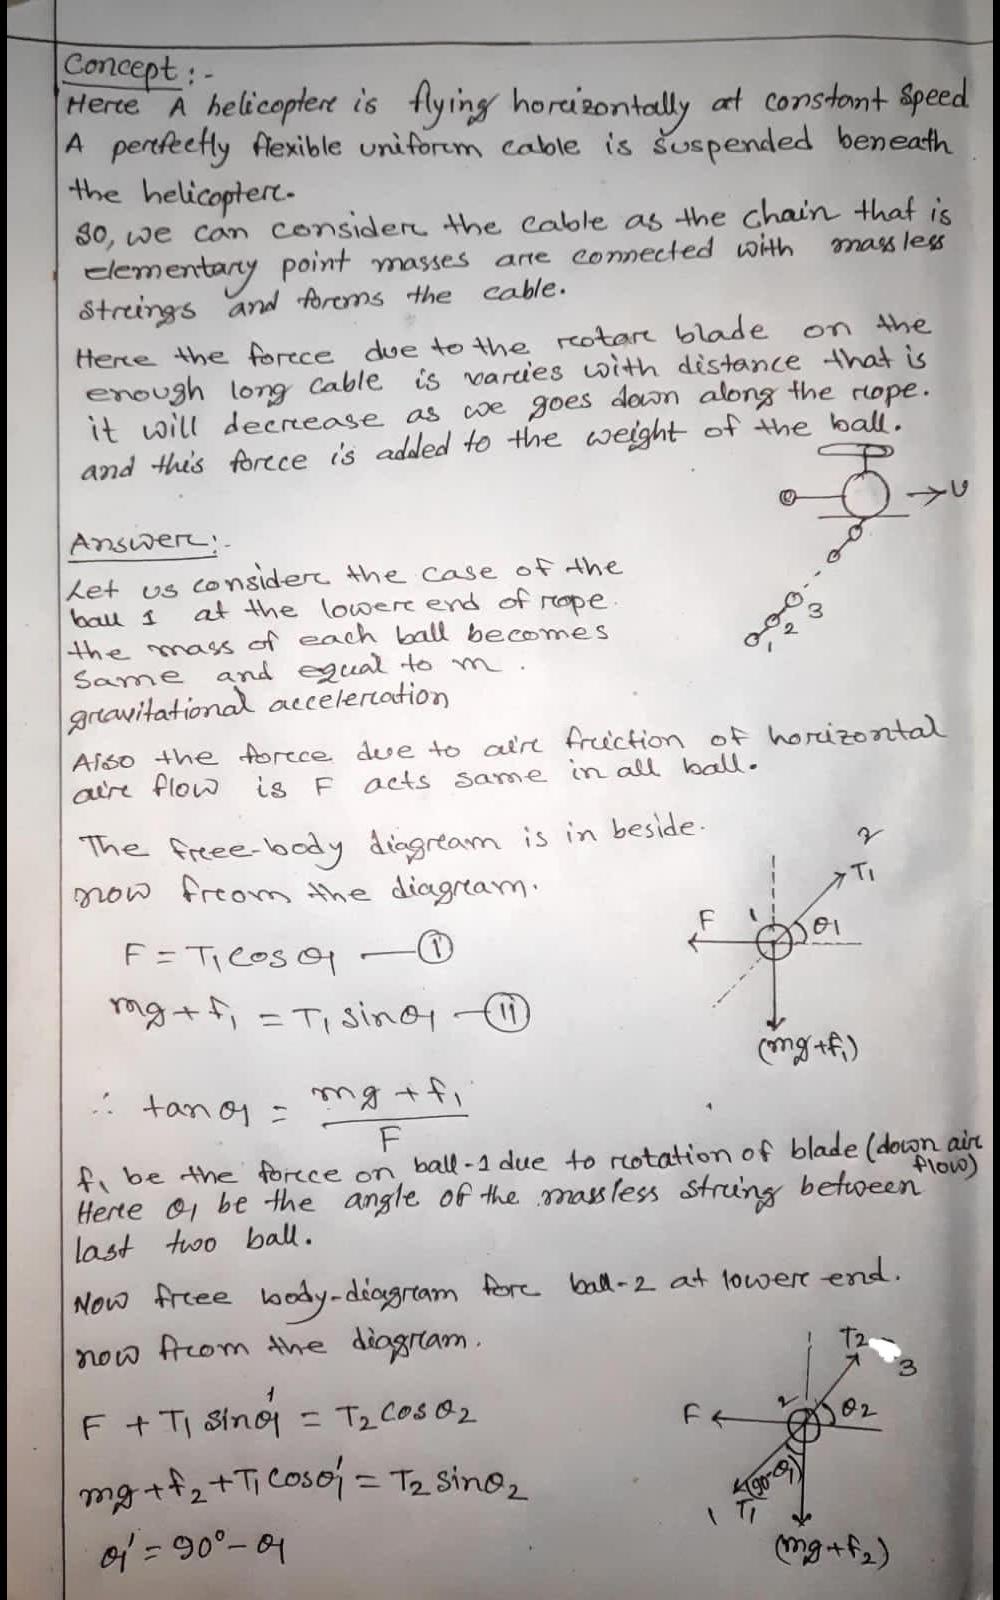 Concept :-
Here A helicopter is flying horizontally at constant speed
A perfectly flexible uniform cable is suspended beneath
the helicopter.
so, we can consider the cable as the chain that is
elementary point masses are connected with massless
strings and forms the cable.
Here the force due to the rotar blade on the
enough long cable is varies with distance that is
it will decrease as we goes down along the rope.
and this force is added to the weight of the ball.
U
3
2
1
Answer :-
Let us consider the case of the
ball 1 at the lower end of rope.
the mass of each ball becomes
same and equal to m.
gravitational acceleration
Also the force due to air friction of horizontal
air flow is F acts same in all ball.
The free-body diagram is in beside.
now from the diagram.
2
T₁
F
1
θ1
(mg+f₁)
F = T₁ cos θ1 — (i)
mg + f₁ = T₁ sin θ1 — (ii)
∴ tan θ1 = (mg + f₁)/F
f₁ be the force on ball-1 due to rotation of blade (down air flow)
Here θ1 be the angle of the massless string between
last two ball.
Now free body-diagram for ball-2 at lower end.
now from the diagram.
T2
3
F
2
θ2
(90-θ1)
1 T₁
(mg+f₂)
F + T₁ sin θ1' = T₂ cos θ2
mg + f₂ + T₁ cos θ1' = T₂ sin θ2
θ1' = 90° - θ1